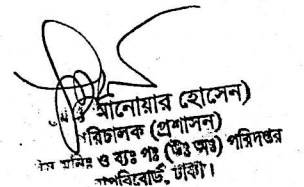 আনোয়ার হোসেন)
পরিচালক (প্রশাসন)
ও ব্যঃ পঃ (উঃ অঃ) পরিদপ্তর
বাপবিবোর্ড, ঢাকা।